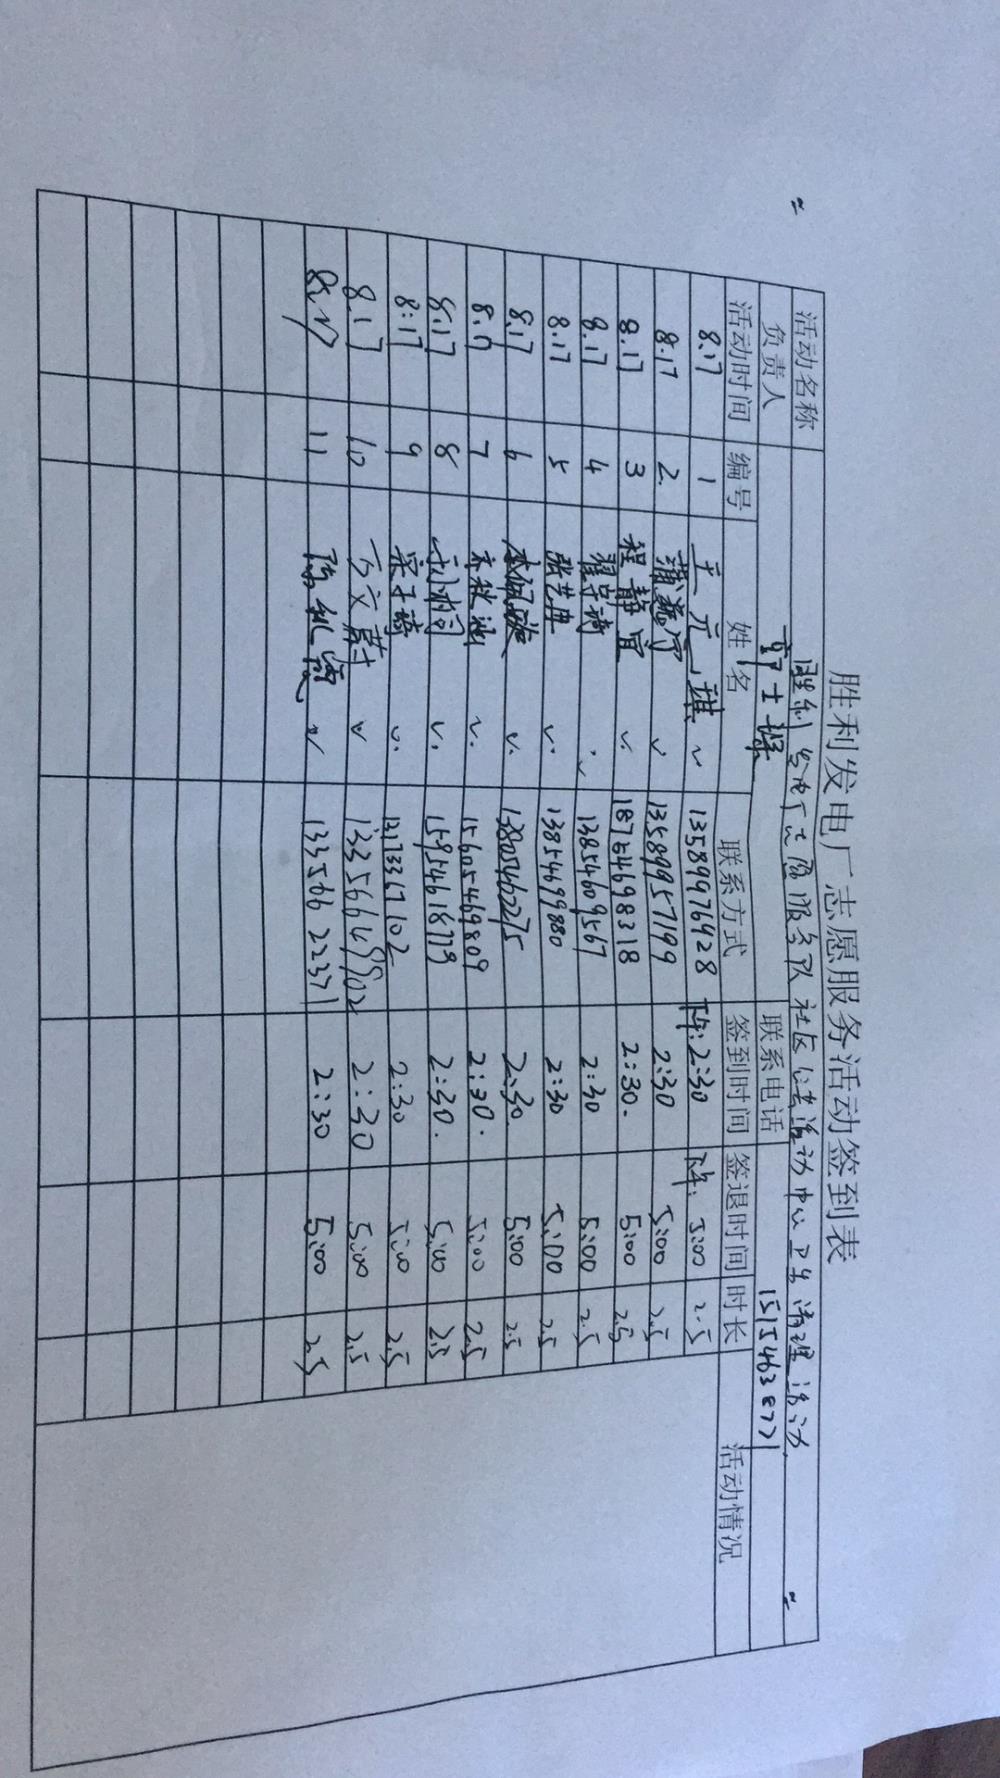 胜利发电厂志愿服务活动签到表
活动名称 胜利发电厂志愿服务队社区公共活动中心卫生清理活动
负责人 联系电话 15154638771
活动时间 编号 姓名 联系方式 签到时间 签退时间 时长 活动情况
8.17 1 王元琪 ✓ 13589976928 下午:2:30 下午:5:00 2.5
8.17 2 ✓ 13589957199 2:30 5:00 2.5
8.17 3 程静宜 ✓ 18764698318 2:30 5:00 2.5
8.17 4 ✓ 13854609567 2:30 5:00 2.5
8.17 5 张艺冉 ✓ 13854699880 2:30 5:00 2.5
8.17 6 ✓ 13805462275 2:30 5:00 2.5
8.17 7 ✓ 15605469809 2:30 5:00 2.5
8.17 8 ✓ 15954618779 2:30 5:00 2.5
8:17 9 梁子琦 ✓ 13173367102 2:30 5:00 2.5
8.17 10 ✓ 13356649902 2:30 5:00 2.5
8.17 11 ✓ 13356622371 2:30 5:00 2.5